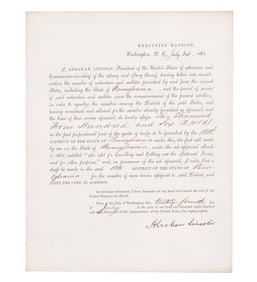 EXECUTIVE MANSION,
Washington, D. C., July
I, ABRAHAM LINCOLN, President of the United States of America, and
Commander-in-chief of the
the number of volunteers and militia furnished by and from the several
States, including the State of Pennsylvania, and the period of service
of said volunteers and militia since the commencement of the present rebellion,
in order to equalize the numbers among the Districts of the said States, and
having considered and allowed for the number already furnished as aforesaid, and
the time of their service aforesaid, do hereby assign Two Thousand
Four Hundred and Six (2406)
as the first proportional part of the quota of troops to be furnished by the
DISTRICT OF THE STATE OF Pennsylvania under this, the first call made
by me on the State of Pennsylvania, under the act approved March
3, 1863, entitled "An Act for Enrolling and Calling out the National Forces,
and for other purposes," and, in pursuance of the act aforesaid, I order that a
draft be made in the said DISTRICT OF THE STATE OF Penn-
sylvania for the number of men herein assigned to said District, and
FIFTY PER CENT. IN ADDITION.
In witness whereof, I have hereunto set my hand and caused the seal of the
United States to be affixed.
Done at the City of Washington, this twenty fourth day
of July, in the year of our Lord one thousand eight hundred
and of the independence of the United States, the eighty-eighth.
Abraham Lincoln